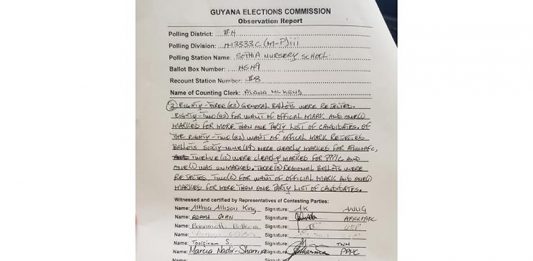 GUYANA ELECTIONS COMMISSION
Observation Report
Polling District: #4
Polling Division:
Polling Station Name: NURSERY SCHOOL
Ballot Box Number:
Recount Station Number: #8
Name of Counting Clerk:
② EIGHTY-THREE (83) GENERAL BALLOTS WERE REJECTED.
EIGHTY-TWO (82) FOR WANT OF OFFICIAL MARK AND ONE(1)
MARKED FOR MORE THAN ONE PARTY LIST OF CANDIDATES. OF
THE EIGHTY-TWO (82) WANT OF OFFICIAL MARK REJECTED
BALLOTS SIXTY-NINE (69) WERE CLEARLY MARKED FOR APNU/AFC,
TWELVE (12) WERE CLEARLY MARKED FOR PPP/C AND
ONE (1) WAS UNMARKED. THREE (3) REGIONAL BALLOTS WERE
REJECTED. TWO(2) FOR WANT OF OFFICIAL MARK AND ONE(1)
MARKED FOR MORE THAN ONE PARTY LIST OF CANDIDATES.
Witnessed and certified by Representatives of Contesting Parties:
Name: Allison King Signature:
Name: Signature:
Name: Signature:
Name: Signature:
Name: Signature:
Name: Marcia Nadir-Sharma Signature: PPP/C